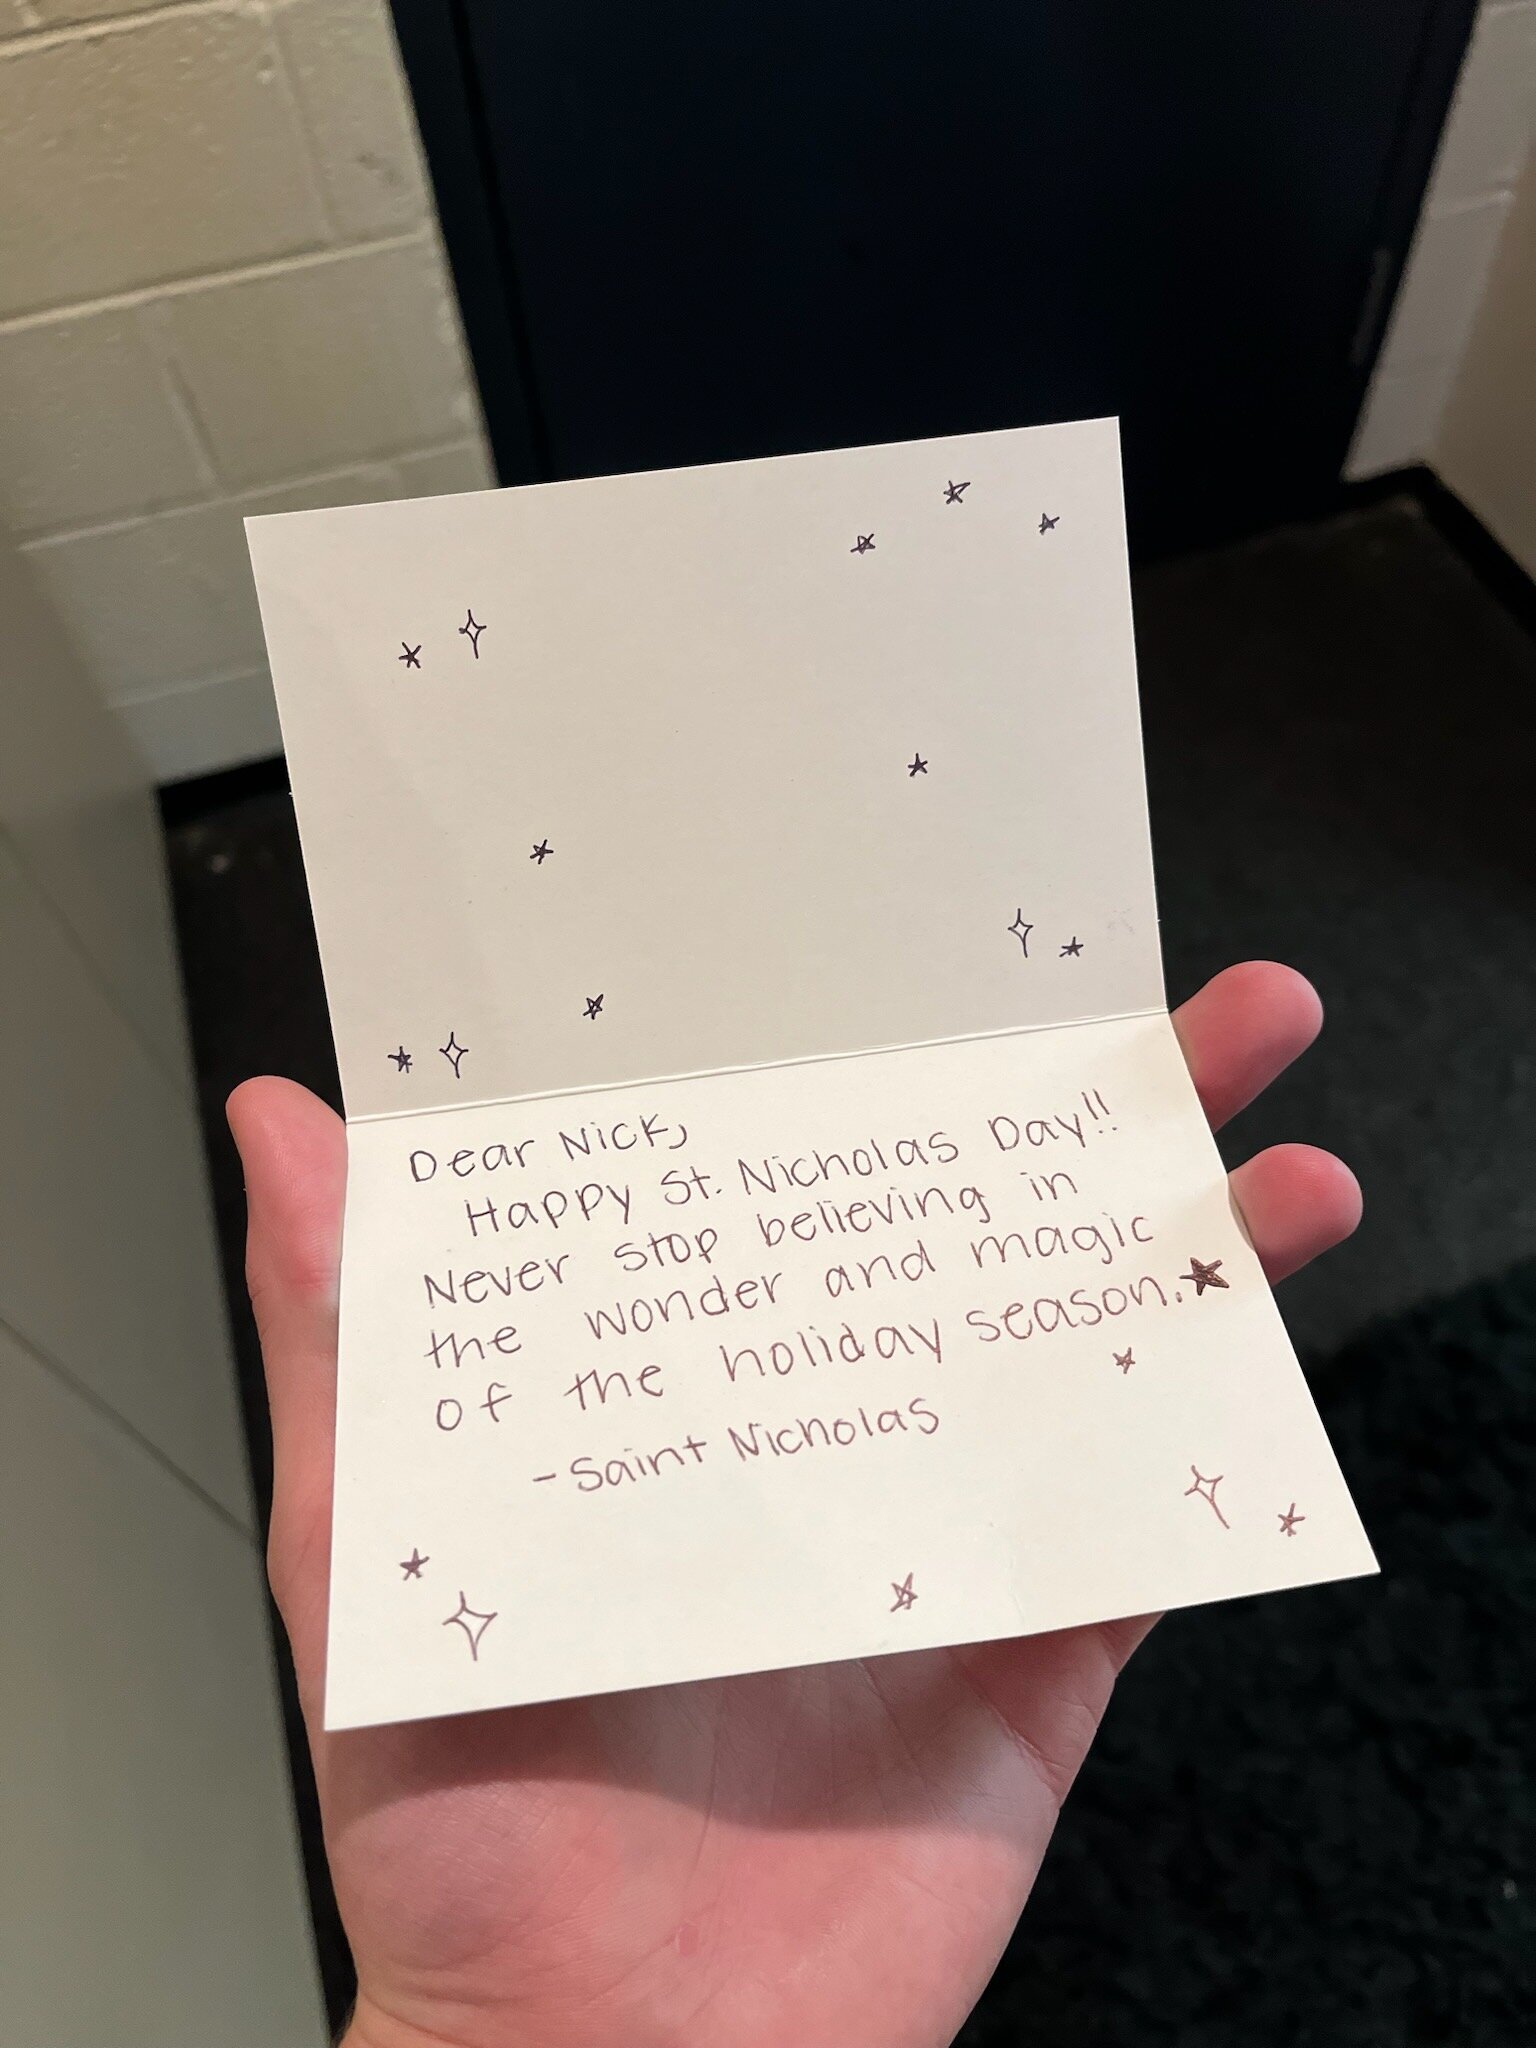 Dear Nick,
Happy St. Nicholas Day!!
Never stop believing in
the wonder and magic
of the holiday season.
-Saint Nicholas